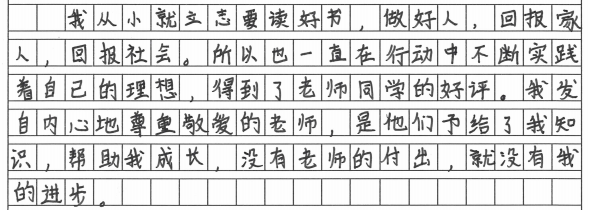 我从小就立志要读好书，做好人，回报家
人，回报社会。所以也一直在行动中不断实践
着自己的理想，得到了老师同学的好评。我发
自内心地尊重敬爱的老师，是他们予给了我知
识，帮助我成长，没有老师的付出，就没有我
的进步。